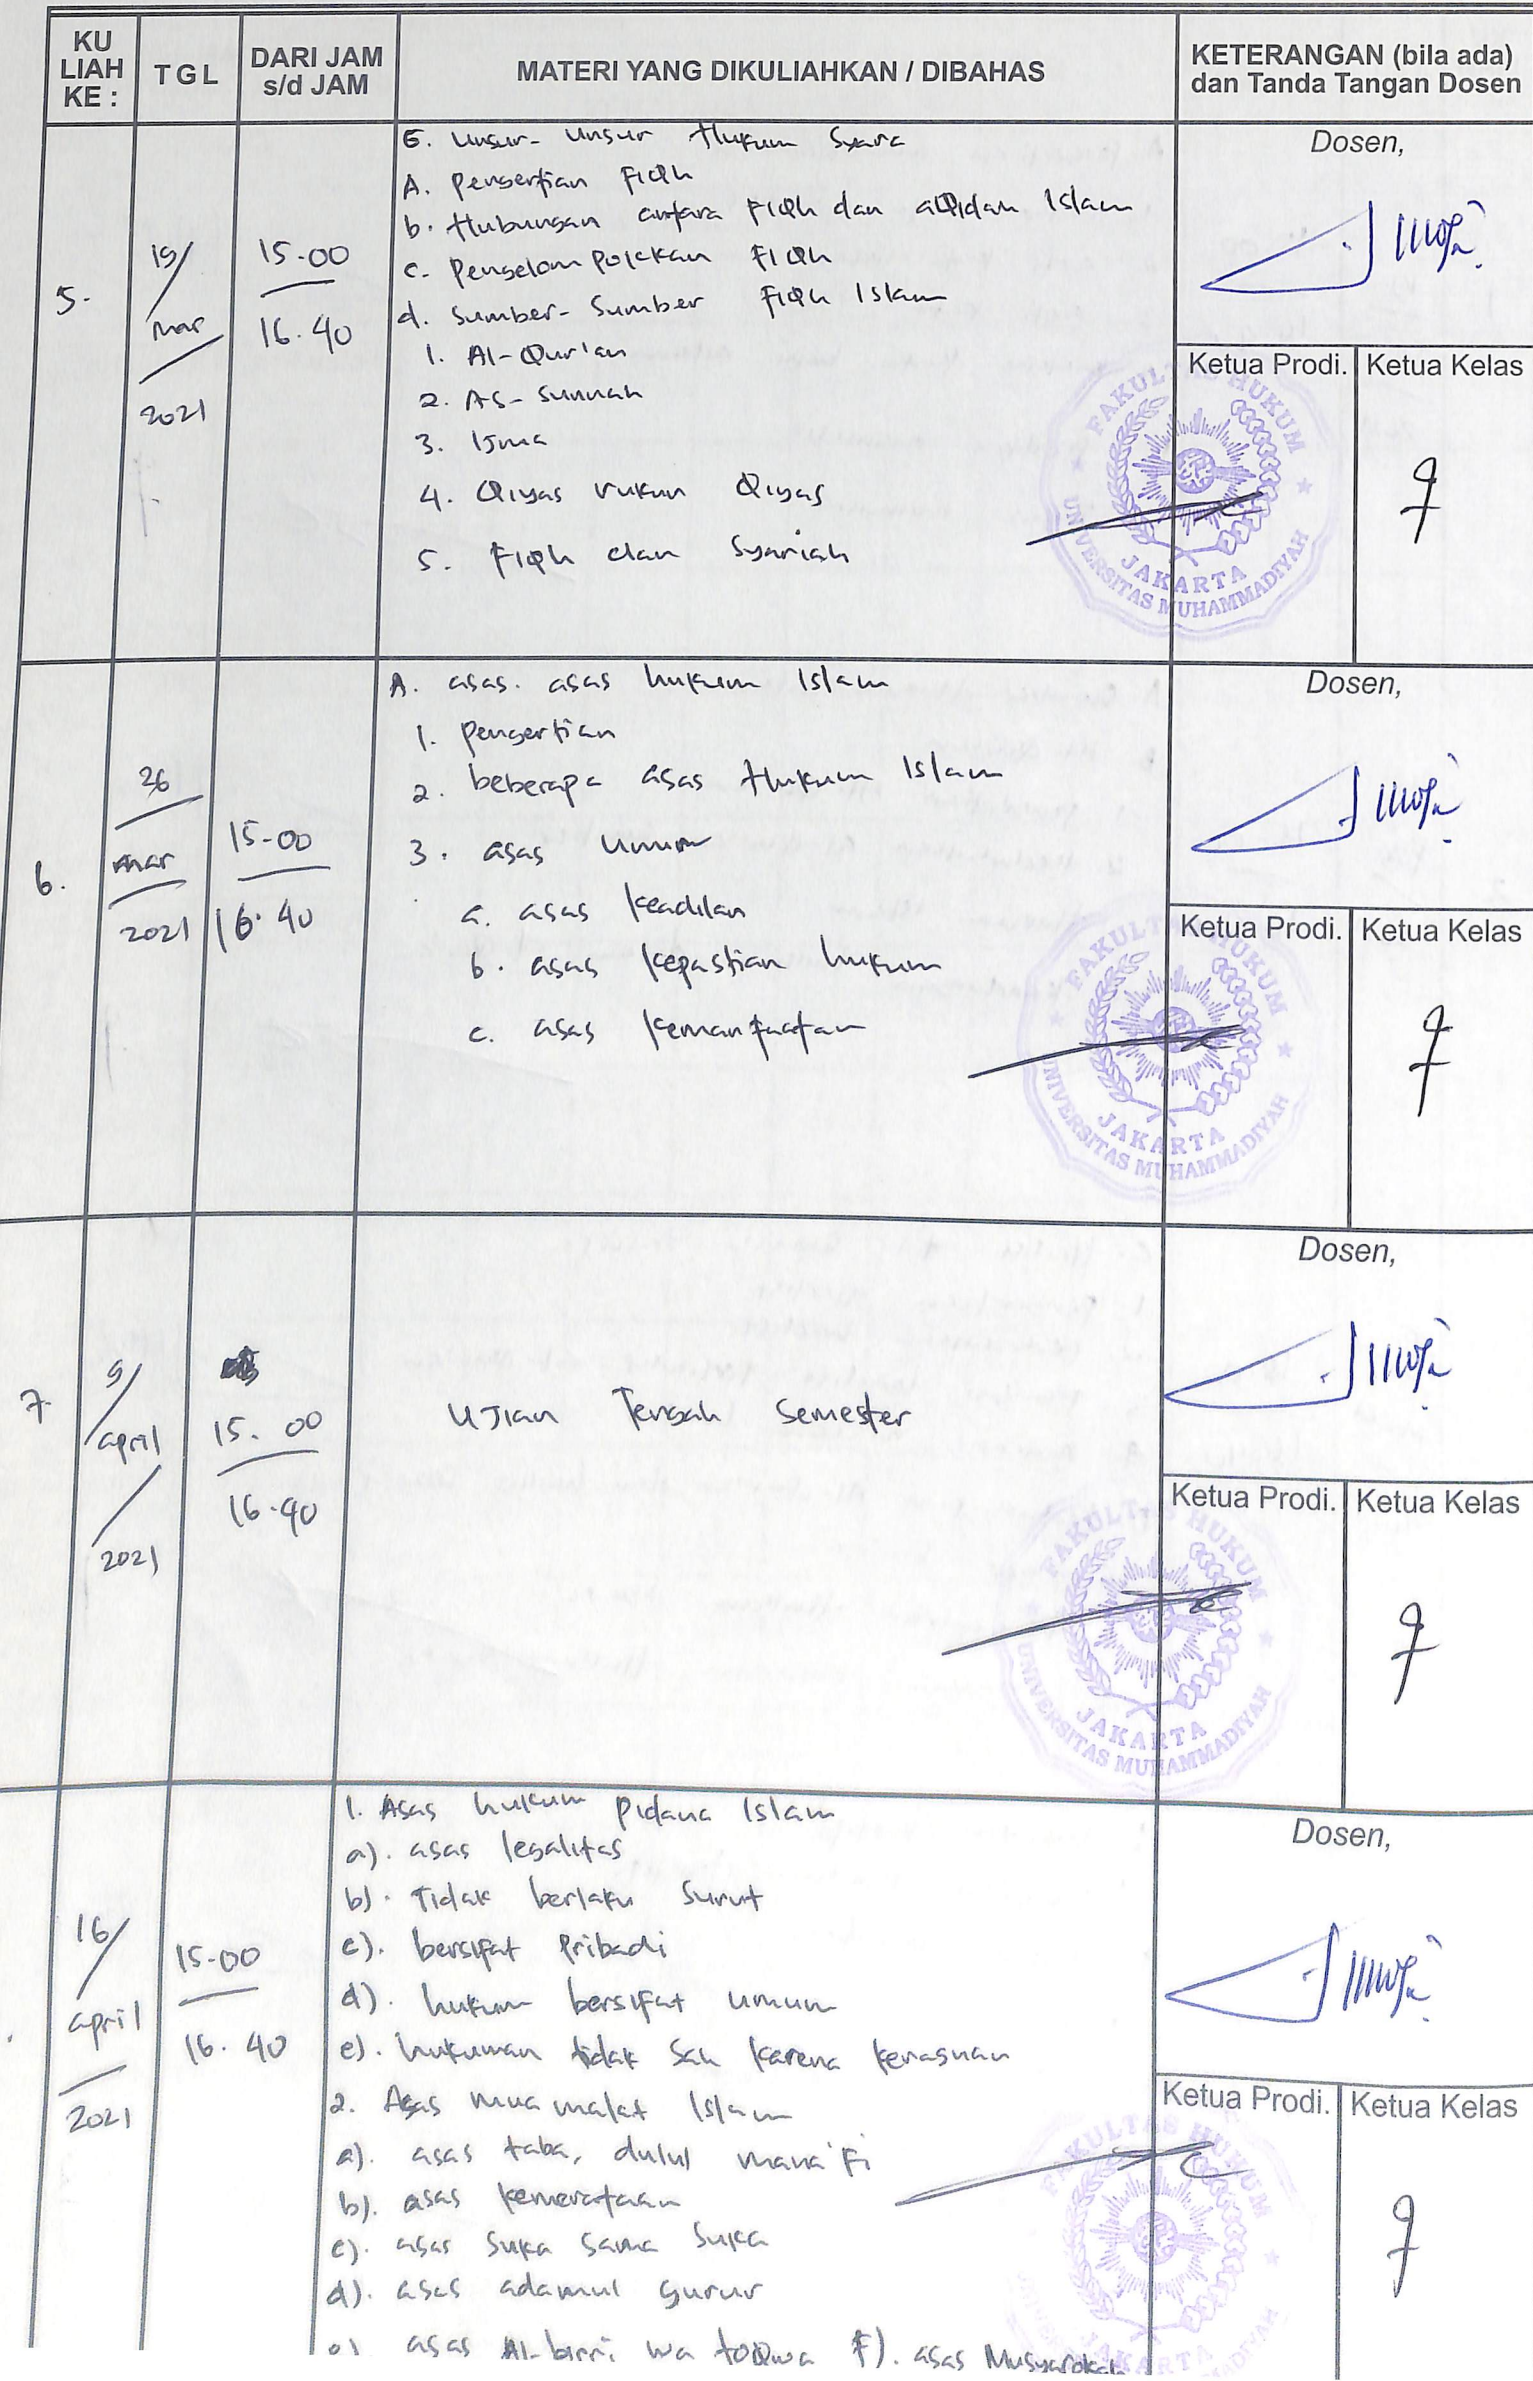 KU
LIAH
KE :
TGL
DARI JAM
s/d JAM
MATERI YANG DIKULIAHKAN / DIBAHAS
KETERANGAN (bila ada)
dan Tanda Tangan Dosen
5.
19/
Mar
2021
15.00
16.40
E. Unsur-Unsur Hukum Syara
A. Pengertian Fiqh
b. Hubungan antara Fiqh dan aqidah Islam
c. Pengelompokkan Fiqh
d. Sumber-Sumber Fiqh Islam
1. Al-Qur'an
2. As-Sunnah
3. Ijma
4. Qiyas rukun Qiyas
5. Fiqh dan Syariah
Dosen,
Ketua Prodi.
Ketua Kelas
FAKULTAS HUKUM
JAKARTA
UNIVERSITAS MUHAMMADIYAH
6.
26
Mar
2021
15.00
16.40
A. asas. asas hukum Islam
1. Pengertian
2. beberapa asas Hukum Islam
3. asas Umum
a. asas Keadilan
b. asas Kepastian hukum
c. asas Kemanfaatan
Dosen,
Ketua Prodi.
Ketua Kelas
FAKULTAS HUKUM
JAKARTA
UNIVERSITAS MUHAMMADIYAH
7.
9/
april
2021
15.00
16.40
UJian Tengah Semester
Dosen,
Ketua Prodi.
Ketua Kelas
FAKULTAS HUKUM
JAKARTA
UNIVERSITAS MUHAMMADIYAH
16/
april
2021
15.00
16.40
1. Asas hukum Pidana Islam
a). asas legalitas
b). Tidak berlaku Surut
c). bersifat Pribadi
d). hukum bersifat umum
e). hukuman tidak Sah Karena Keraguan
2. Asas muamalat Islam
a). asas taba, dulul mana'Fi
b). asas Kemerataan
c). asas Suka Sama Suka
d). asas adamul gurur
e) asas Al-birri wa taqwa F). asas Musyarokah
Dosen,
Ketua Prodi.
Ketua Kelas
FAKULTAS HUKUM
JAKARTA